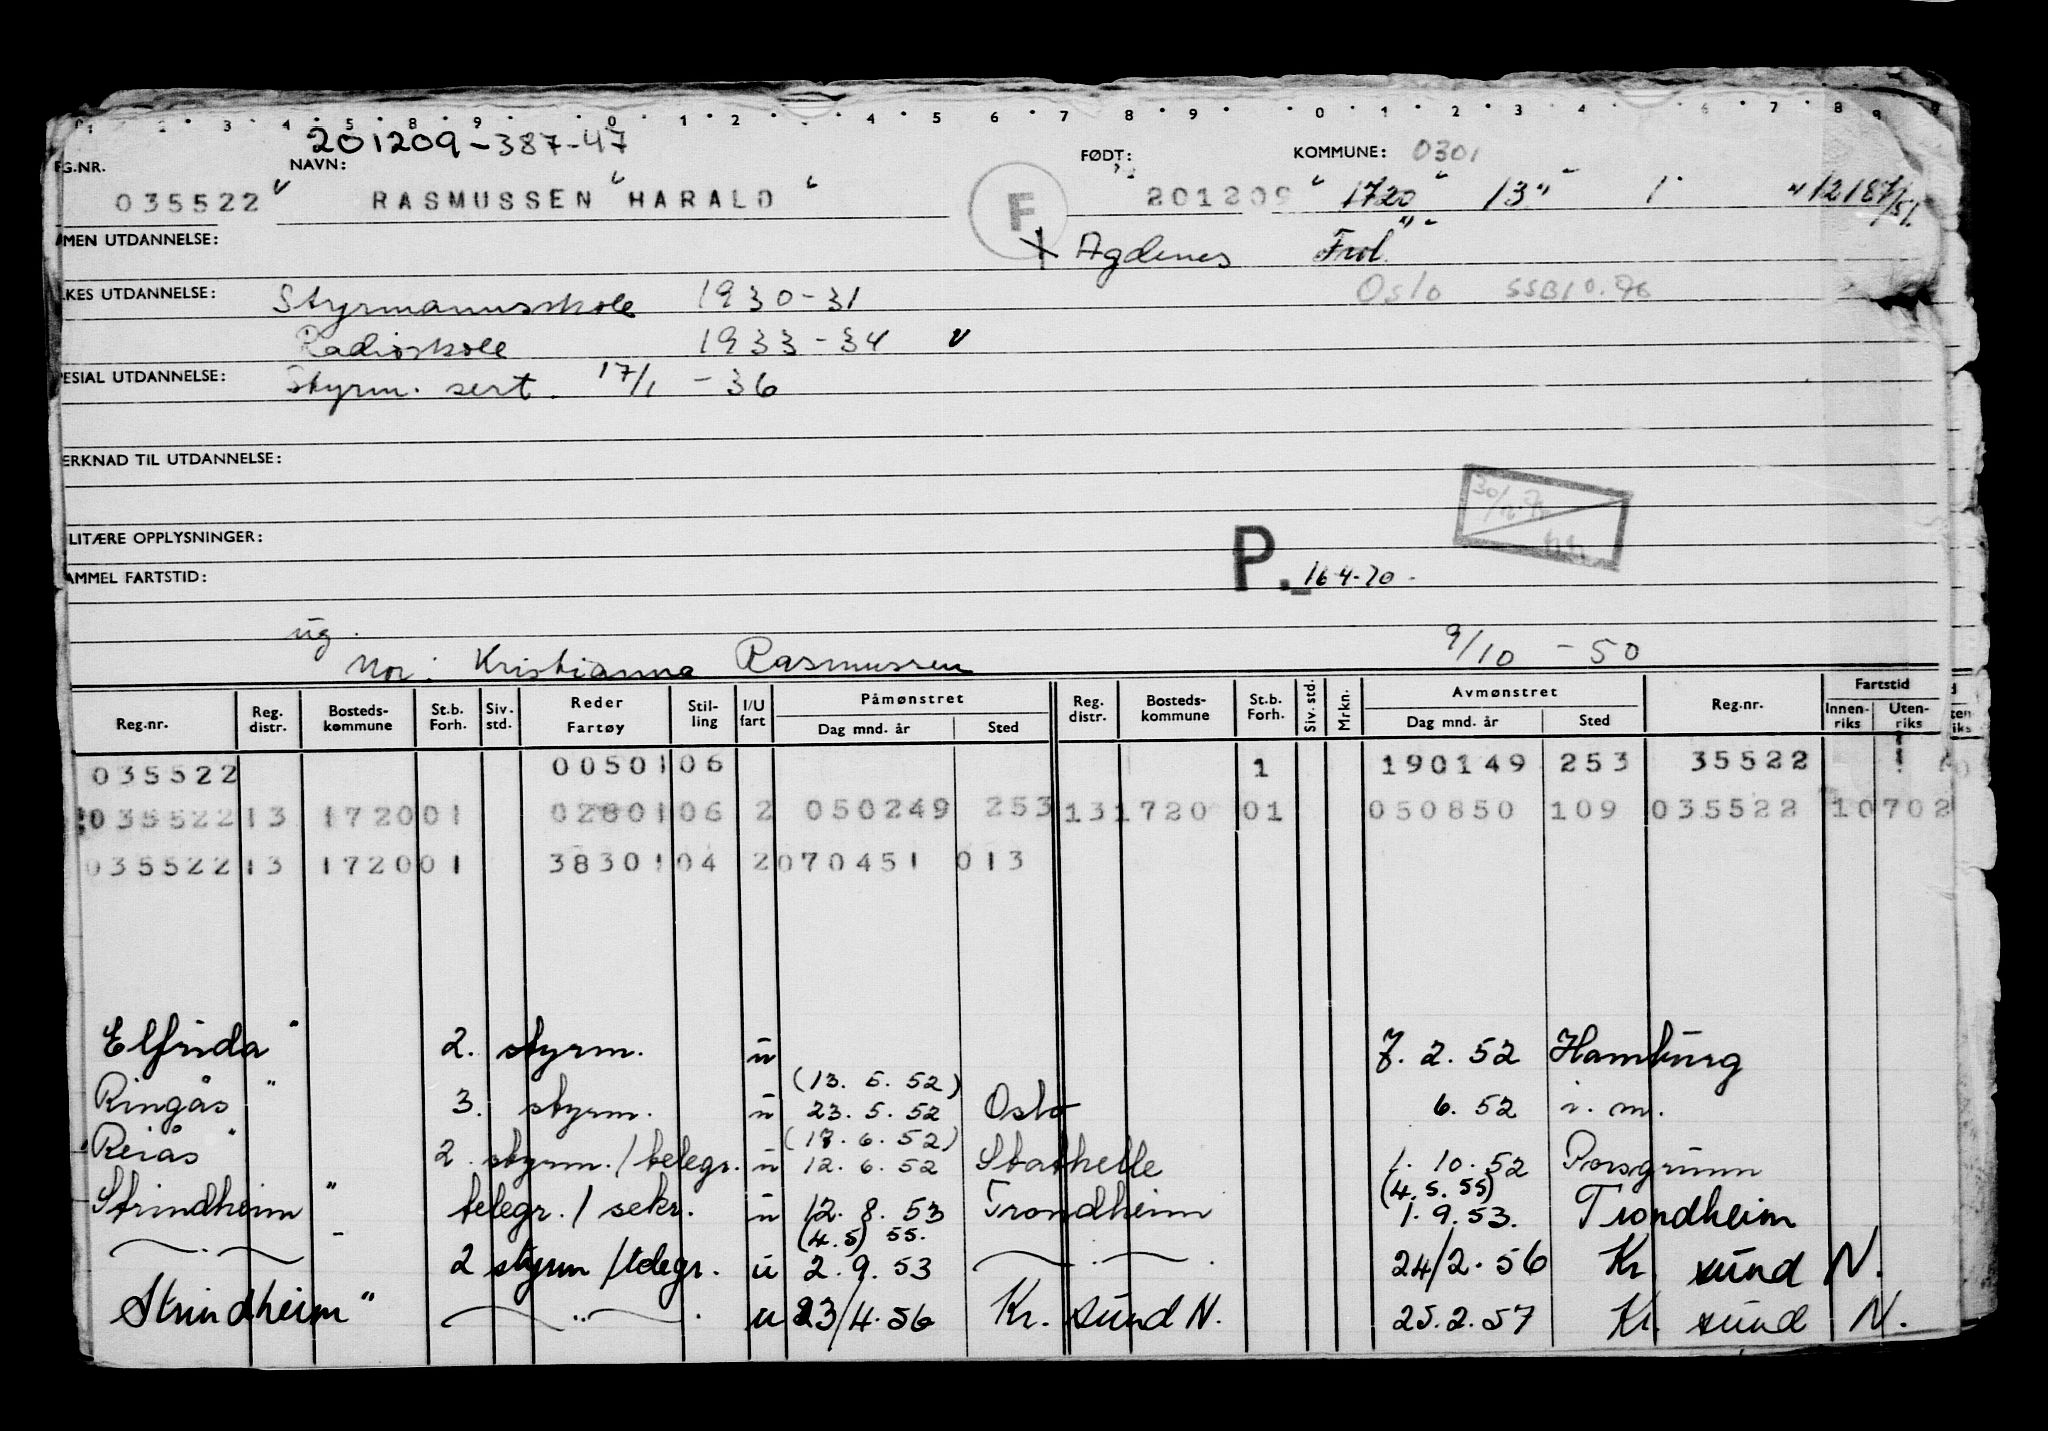 1 2 3 4 5 6 7 8 9 0 1 2 4 5 6 7 8 9 0 1 2 3 4 6 7 8 9
201209-387-47
G.NR. NAVN: FØDT: KOMMUNE: 0301
035522 RASMUSSEN HARALD F 201209 1720 13 1 12187/51
MEN UTDANNELSE: Agdenes
Oslo SSB10.76
KES UTDANNELSE: Styrmannsskole 1930-31
Radioskole 1933-34
ESIAL UTDANNELSE: Styrm. sert. 17/1 - 36
ERKNAD TIL UTDANNELSE:
LITÆRE OPPLYSNINGER:
AMMEL FARTSTID:
P. 16 4-70.
ug.
Mor: Kristianna Rasmussen 9/10 - 50
Reg.nr. Reg. distr. Bosteds-kommune St.b. Forh. Siv. std. Reder Fartøy Stil-ling I/U fart Påmønstret Dag mnd. år Sted Reg. distr. Bosteds-kommune St.b. Forh. Siv. std. Mrkn. Avmønstret Dag mnd. år Sted Reg.nr. Fartstid Innen-riks Uten-riks
035522 00501 06 1 190149 253 35522
035522 13 1720 01 02801 06 2 050249 253 13 1720 01 050850 109 035522 10702
035522 13 1720 01 38301 04 2 070451 013
Elfrida" 2. styrm. u 7. 2. 52 Hamburg
(13. 5. 52)
Ringås" 3. styrm. u 23. 5. 52 Oslo 6. 52 i. m.
(18. 6. 52)
Reiås" 2. styrm. / telegr. u 12. 6. 52 Stathelle 1. 10. 52 Porsgrunn
(4. 5. 55)
Strindheim" telegr. / sekr. u 12. 8. 53 Trondheim 1. 9. 53. Trondheim
(4. 5) 55.
2 styrm / telegr. u 2. 9. 53 24/2. 56 Kr. sund N.
Strindheim" u 23/4. 56 Kr. sund N. 25. 2. 57 Kr. sund N.